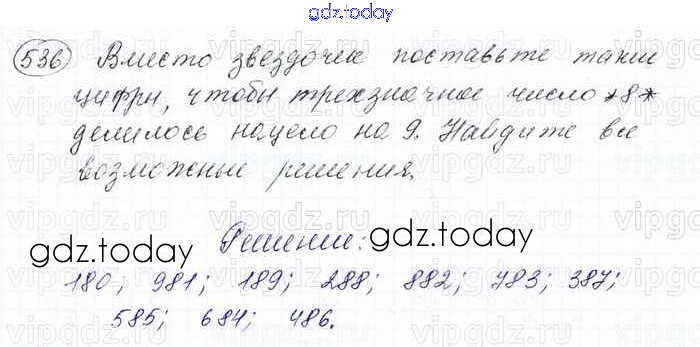 gdz.today
536 Вместо звездочек поставьте такие
цифры, чтобы трехзначное число *8*
делилось нацело на 9. Найдите все
возможные решения.
gdz.today
Решение:
gdz.today
180; 981; 189; 288; 882; 783; 387;
585; 684; 486.